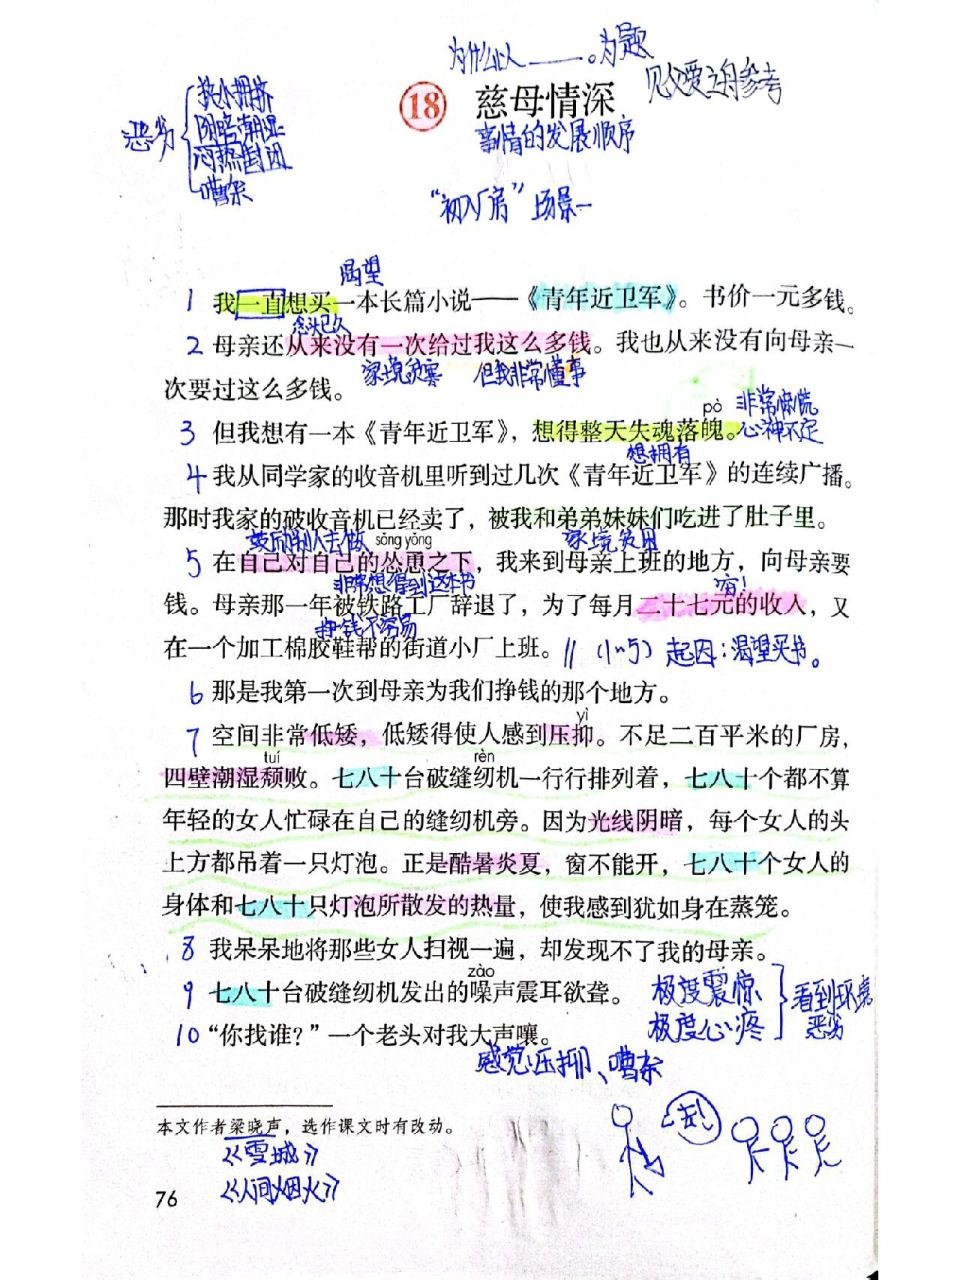 为什么以____。为题
18 慈母情深
见父爱之舟参考
事情的发展顺序
恶劣
狭小拥挤
阴暗潮湿
闷热封闭
嘈杂
“初入厂房”场景一
渴望
1 我一直想买一本长篇小说——《青年近卫军》。书价一元多钱。
念头已久
2 母亲还从来没有一次给过我这么多钱。我也从来没有向母亲一
家境贫寒 但我非常懂事
次要过这么多钱。
pò
非常慌
心神不定
3 但我想有一本《青年近卫军》，想得整天失魂落魄。
想拥有
4 我从同学家的收音机里听到过几次《青年近卫军》的连续广播。
那时我家的破收音机已经卖了，被我和弟弟妹妹们吃进了肚子里。
鼓励别人去做 sǒng yǒng 家境贫困
5 在自己对自己的怂恿之下，我来到母亲上班的地方，向母亲要
非常想得到这本书
钱。母亲那一年被铁路工厂辞退了，为了每月二十七元的收入，又
挣钱不容易
在一个加工棉胶鞋帮的街道小厂上班。// (1~5) 起因：渴望买书。
6 那是我第一次到母亲为我们挣钱的那个地方。
yì
7 空间非常低矮，低矮得使人感到压抑。不足二百平米的厂房，
tuí rèn
四壁潮湿颓败。七八十台破缝纫机一行行排列着，七八十个都不算
年轻的女人忙碌在自己的缝纫机旁。因为光线阴暗，每个女人的头
上方都吊着一只灯泡。正是酷暑炎夏，窗不能开，七八十个女人的
身体和七八十只灯泡所散发的热量，使我感到犹如身在蒸笼。
8 我呆呆地将那些女人扫视一遍，却发现不了我的母亲。
zào
9 七八十台破缝纫机发出的噪声震耳欲聋。
极度震惊
极度心疼
看到环境
恶劣
10 “你找谁？”一个老头对我大声嚷。
感觉：压抑、嘈杂
本文作者梁晓声，选作课文时有改动。
《雪城》
《人间烟火》
76